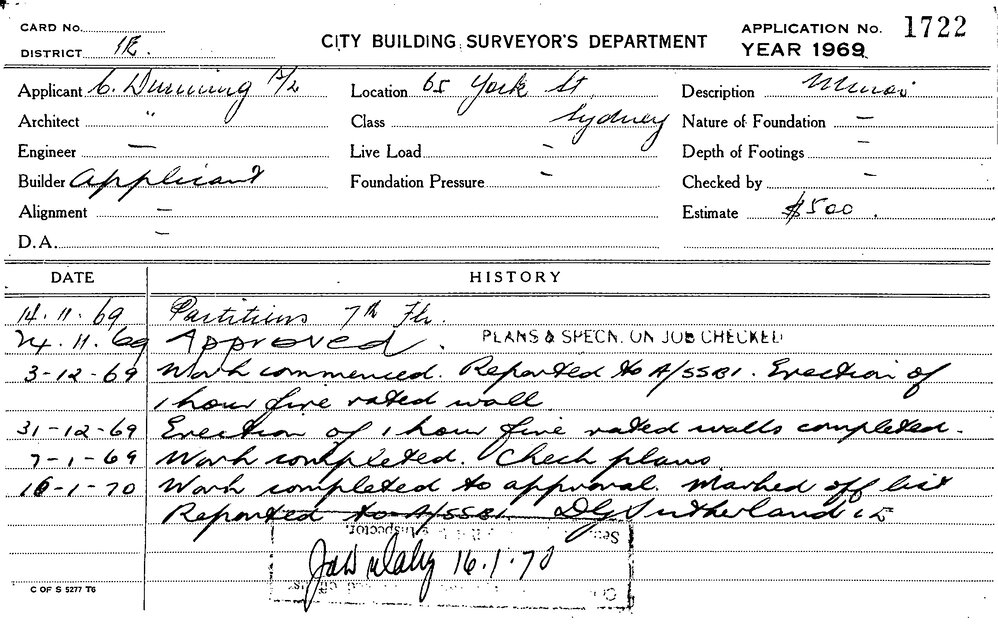 CARD No.
DISTRICT 1E.
CITY BUILDING SURVEYOR'S DEPARTMENT
APPLICATION No. 1722
YEAR 1969
Applicant C. Dunning P/L Location 65 York St Description Minor
Architect " Class Sydney Nature of Foundation —
Engineer — Live Load - Depth of Footings —
Builder Applicant Foundation Pressure - Checked by -
Alignment — Estimate $500.
D.A. —
DATE HISTORY
14.11.69 Partitions 7th Flr.
24.11.69 Approved. PLANS & SPECN. ON JOB CHECKED
3-12-69 Work commenced. Reported to A/SSBI. Erection of
1 hour fire rated wall.
31-12-69 Erection of 1 hour fire rated walls completed.
7-1-69 Work completed. Check plans
16-1-70 Work completed to approval. Marked off list
Reported to A/SSBI. DG Sutherland 1E
Inspector
16.1.70
C OF S 5277 T6